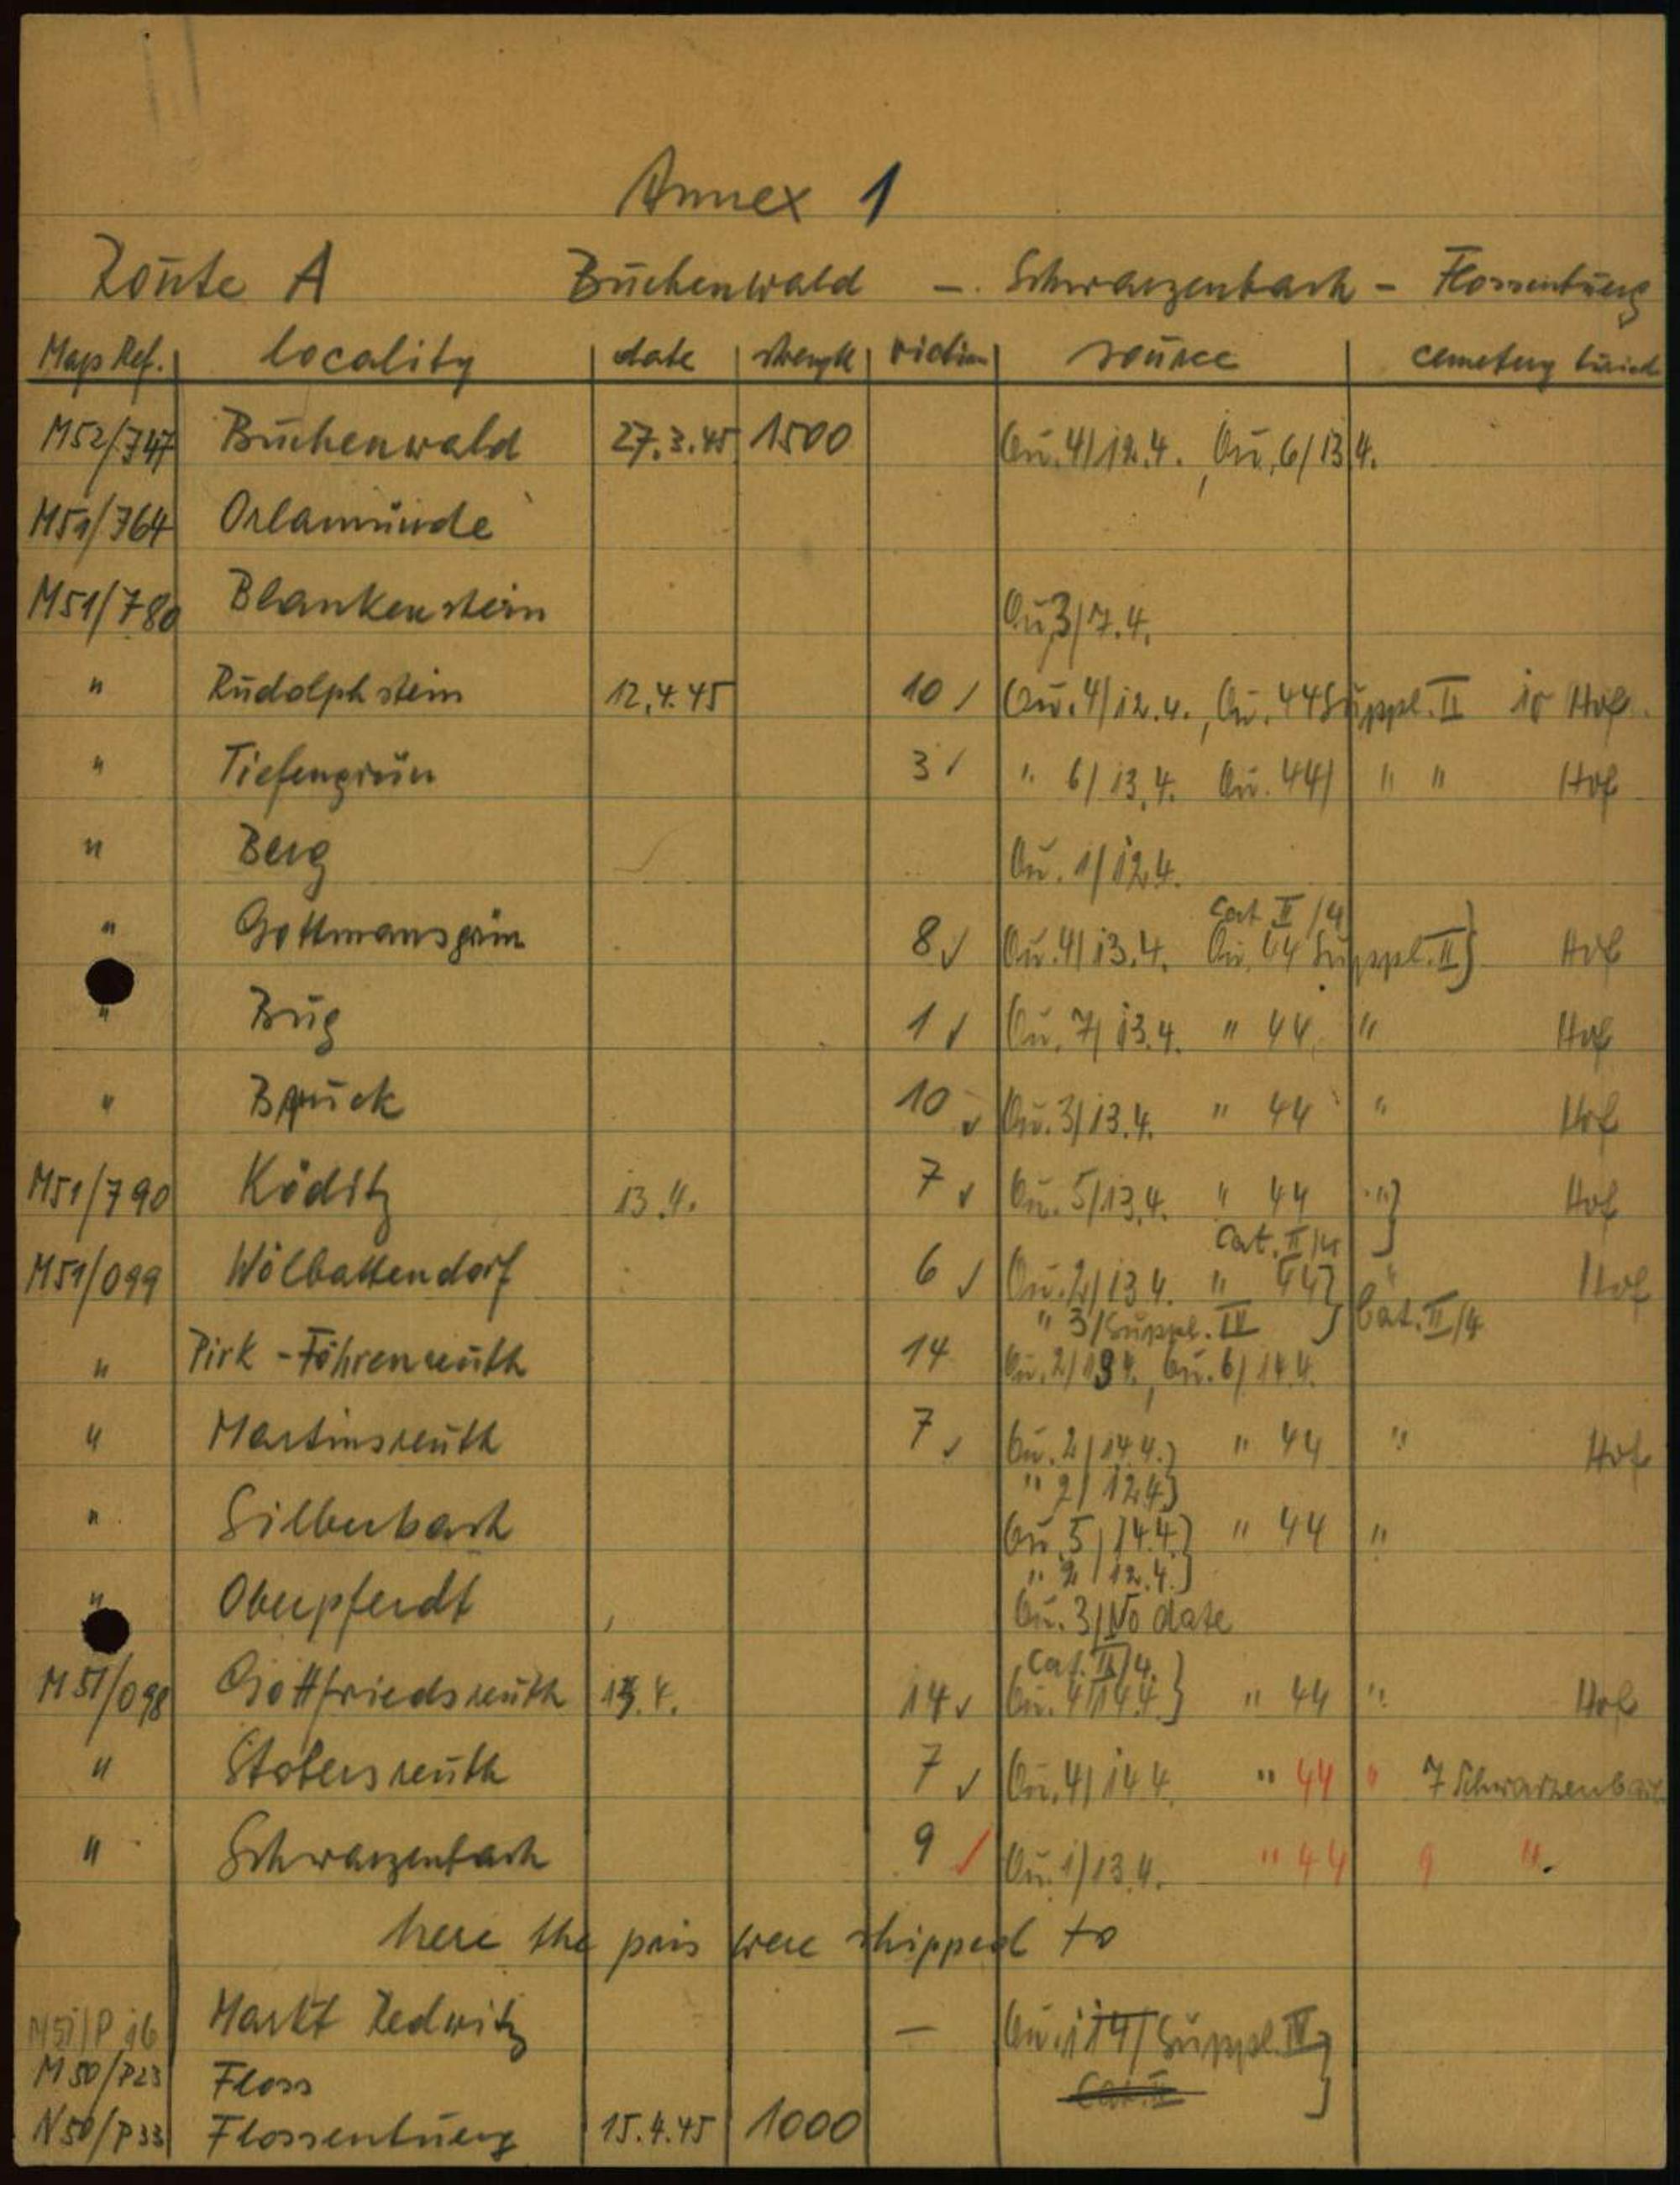 Annex 1
Route A Buchenwald - Schwarzenbach - Flossenbuerg
Map Ref. locality date strength victims source cemetery buried
M52/747 Buchenwald 27.3.45 1500 Qu. 4/12.4., Qu. 6/13.4.
M51/764 Orlamünde
M51/780 Blankenstein Qu 3/7.4.
" Rudolphstein 12.4.45 10 ✓ Qu. 4/12.4., Qu. 44 Suppl. II 10 Hof
" Tiefengrün 3 ✓ " 6/13.4. Qu. 44/ " " Hof
" Berg Qu. 1/12.4.
Cat II/4
" Gottmansgrün 8 ✓ Qu. 4/13.4. Qu. 44 Suppl. II} Hof
" Bug 1 ✓ Qu. 7/13.4. " 44 " Hof
" Bruck 10 ✓ Qu. 3/13.4. " 44 " Hof
M51/790 Köditz 13.4. 7 ✓ Qu. 5/13.4. " 44 "} Hof
Cat. II/4
M51/099 Wölbattendorf 6 ✓ Qu. 2/13.4. " 44} " Hof
" 3/Suppl. IV } Cat. II/4
" Pirk - Föhrenreuth 14 Qu. 2/13.4., Qu. 6/14.4.
" Martinsreuth 7 ✓ Qu. 2/14.4.} " 44 " Hof
" 2/12.4}
" Silberbach Qu 5/14.4.} " 44 "
" 2/12.4.}
" Oberpferdt Qu. 3/No date
Cat. II/4. }
M51/098 Gottfriedsreuth 13.4. 14 ✓ Qu. 4/14.4. } " 44 " Hof
" Stobersreuth 7 ✓ Qu. 4/14.4. " 44 " 7 Schwarzenbach
" Schwarzenbach 9 ✓ Qu. 1/13.4. " 44 9 ".
here the pris were shipped to
N51/P 16 Markt Redwitz - Qu. 114/Suppl. IV }
M50/P23 Floss Cat. II
N50/P33 Flossenbuerg 15.4.45 1000